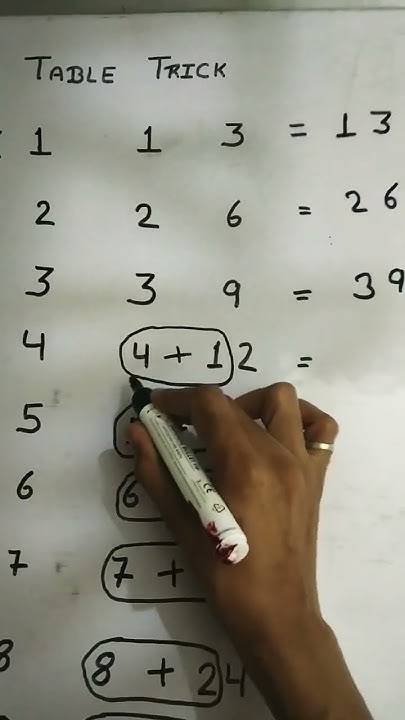 TABLE TRICK
1 1 3 = 13
2 2 6 = 26
3 3 9 = 39
4 4 + 12 =
5
6 6
7 7 +
8 8 + 24